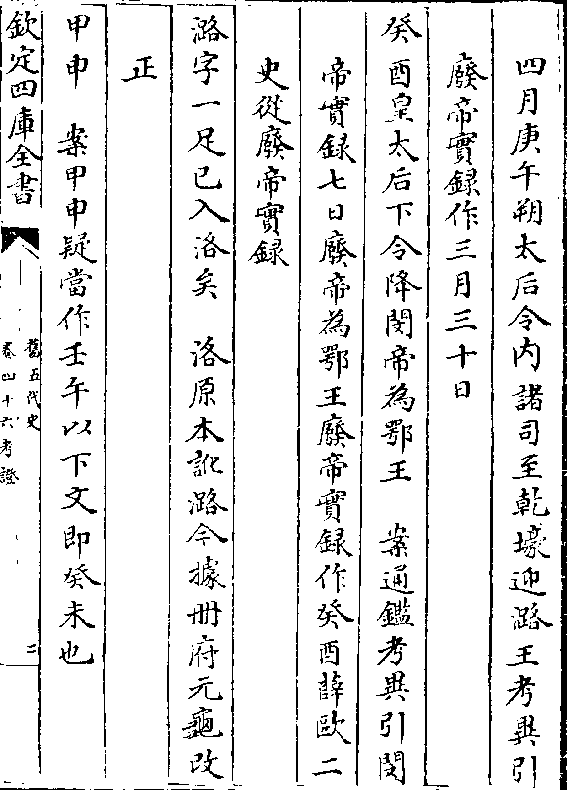 四月庚午朔太后令内諸司至乾壕迎潞王考異引
廢帝實録作三月三十日
癸酉皇太后下令降閔帝為鄂王　案通鑑考異引閔
帝實録七日廢帝為鄂王廢帝實録作癸酉薛歐二
史從廢帝實録
潞字一足已入洛矣　洛原本訛潞今據冊府元龜改
正
甲申　案甲申疑當作壬午以下文即癸未也
欽定四庫全書
舊五代史
卷四十六考證
二